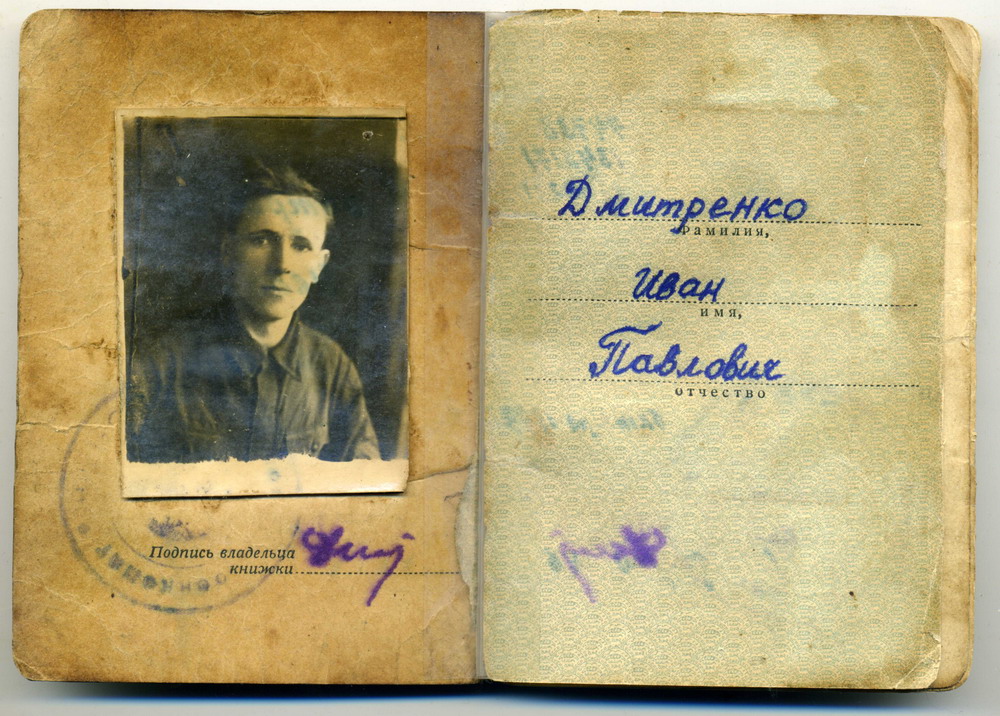 Подпись владельца
книжки
Дмитренко
Фамилия,
Иван
имя,
Павлович
отчество